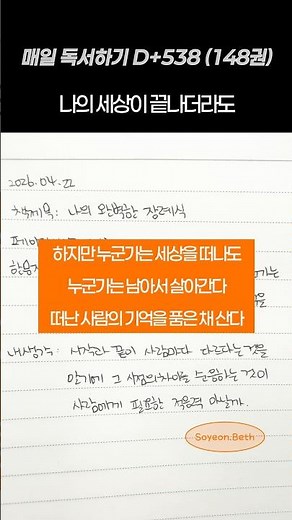 매일 독서하기 D+538 (148권)
나의 세상이 끝나더라도
2026.04.22
책제목: 나의 완벽한 장례식
하지만 누군가는 세상을 떠나도
누군가는 남아서 살아간다
떠난 사람의 기억을 품은 채 산다
내생각: 시작과 끝이 사람마다 다르다는 것을
알기에 그 시점의 차이를 수용하는 것이
사람에게 필요한 적응력 아닐까.
Soyeon.Beth